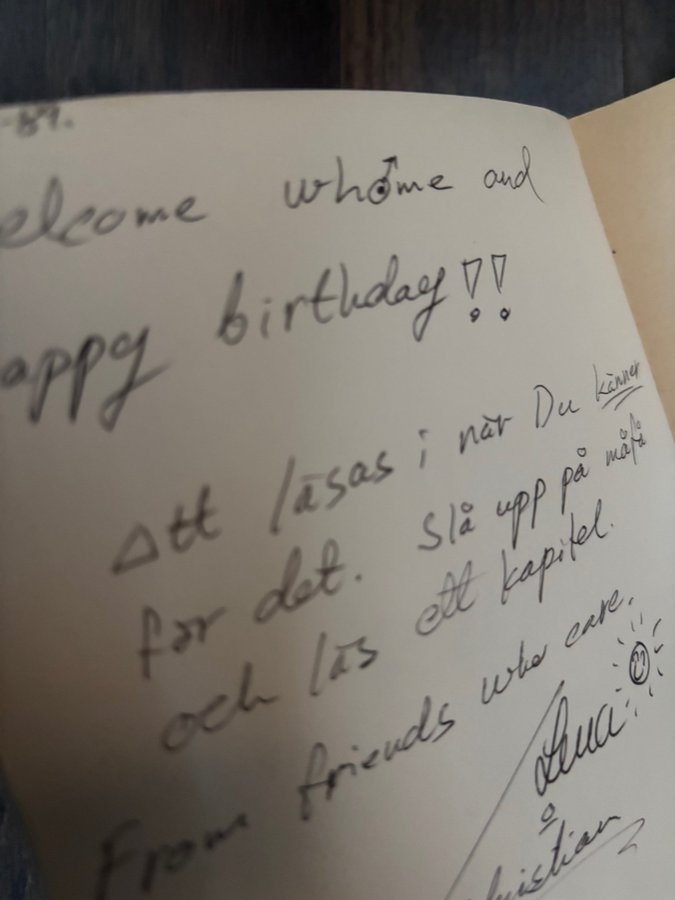 -89.
elcome whome and
appy birthday!!
Att läsas i när Du känner
för det. Slå upp på måfå
och läs ett kapitel.
From friends who care.
Lena
o
Christian